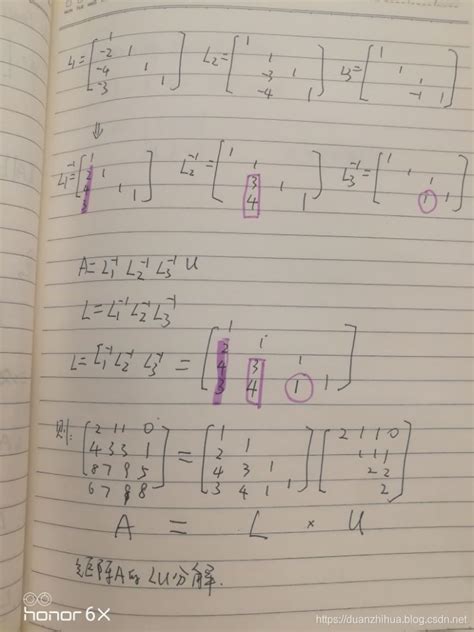 L₁= [ 1 ; -2 1 ; -4 1 ; -3 1 ] L₂= [ 1 ; 1 ; -3 1 ; -4 1 ] L₃= [ 1 ; 1 ; 1 ; -1 1 ]
⇓
L₁⁻¹= [ 1 ; 2 1 ; 4 1 ; 3 1 ] L₂⁻¹= [ 1 ; 1 ; 3 1 ; 4 1 ] L₃⁻¹= [ 1 ; 1 ; 1 ; 1 1 ]
A= L₁⁻¹ L₂⁻¹ L₃⁻¹ U
L= L₁⁻¹ L₂⁻¹ L₃⁻¹
L= L₁⁻¹ L₂⁻¹ L₃⁻¹ = [ 1 ; 2 1 ; 4 3 1 ; 3 4 1 1 ]
则: [ 2 1 1 0 ; 4 3 3 1 ; 8 7 9 5 ; 6 7 9 8 ] = [ 1 ; 2 1 ; 4 3 1 ; 3 4 1 1 ] [ 2 1 1 0 ; 1 1 1 ; 2 2 ; 2 ]
A = L × U
矩阵A的LU分解.
honor 6X
https://duanzhihua.blog.csdn.net